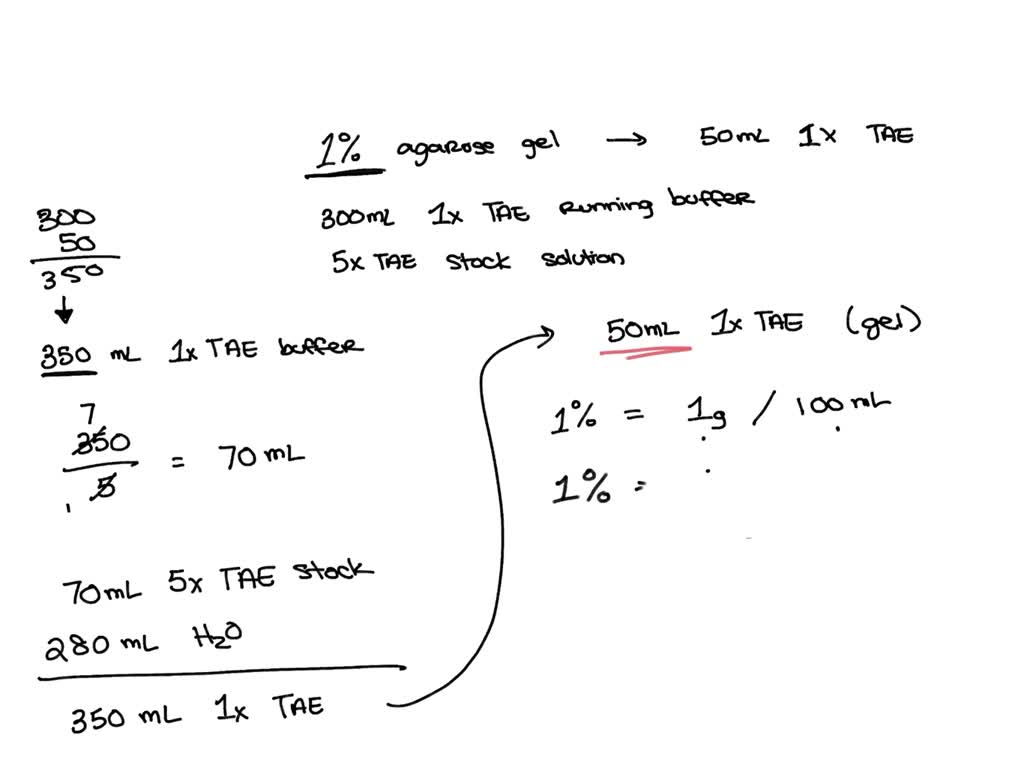 1% agarose gel → 50mL 1x TAE
300mL 1x TAE running buffer
5x TAE stock solution
300
50
350
↓
350 mL 1x TAE buffer
7
350
5
1
= 70 mL
70mL 5x TAE stock
280 mL H₂O
350 mL 1x TAE
50mL 1x TAE (gel)
1% = 1g / 100mL
1% =